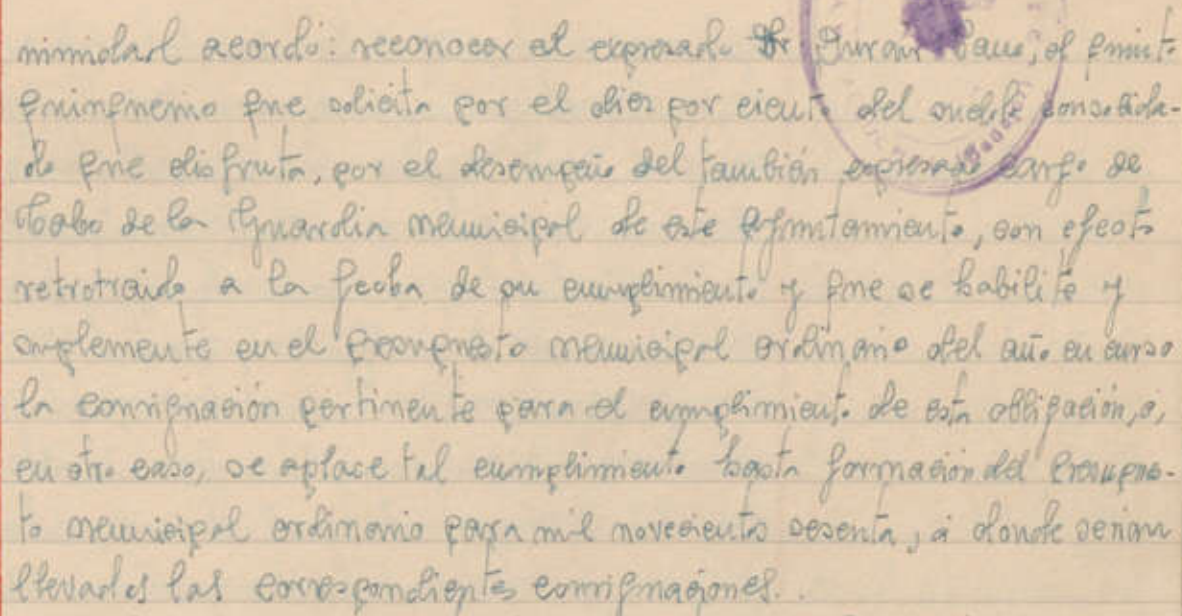 nimidad acordó: reconocer al expresado Sr. Duran Cano, el quinto
quinquenio que solicita por el diez por ciento del sueldo consolida-
do que disfruta, por el desempeño del también expresado cargo de
Cabo de la Guardia Municipal de este Ayuntamiento, con efecto
retrotraido a la fecha de su cumplimiento y que se habilite y
suplemente en el Presupuesto Municipal ordinario del año en curso
la consignación pertinente para el cumplimiento de esta obligación, o,
en otro caso, se aplace tal cumplimiento hasta formación del Presupues-
to Municipal ordinario para mil novecientos sesenta, a donde serian
llevadas las correspondientes consignaciones.